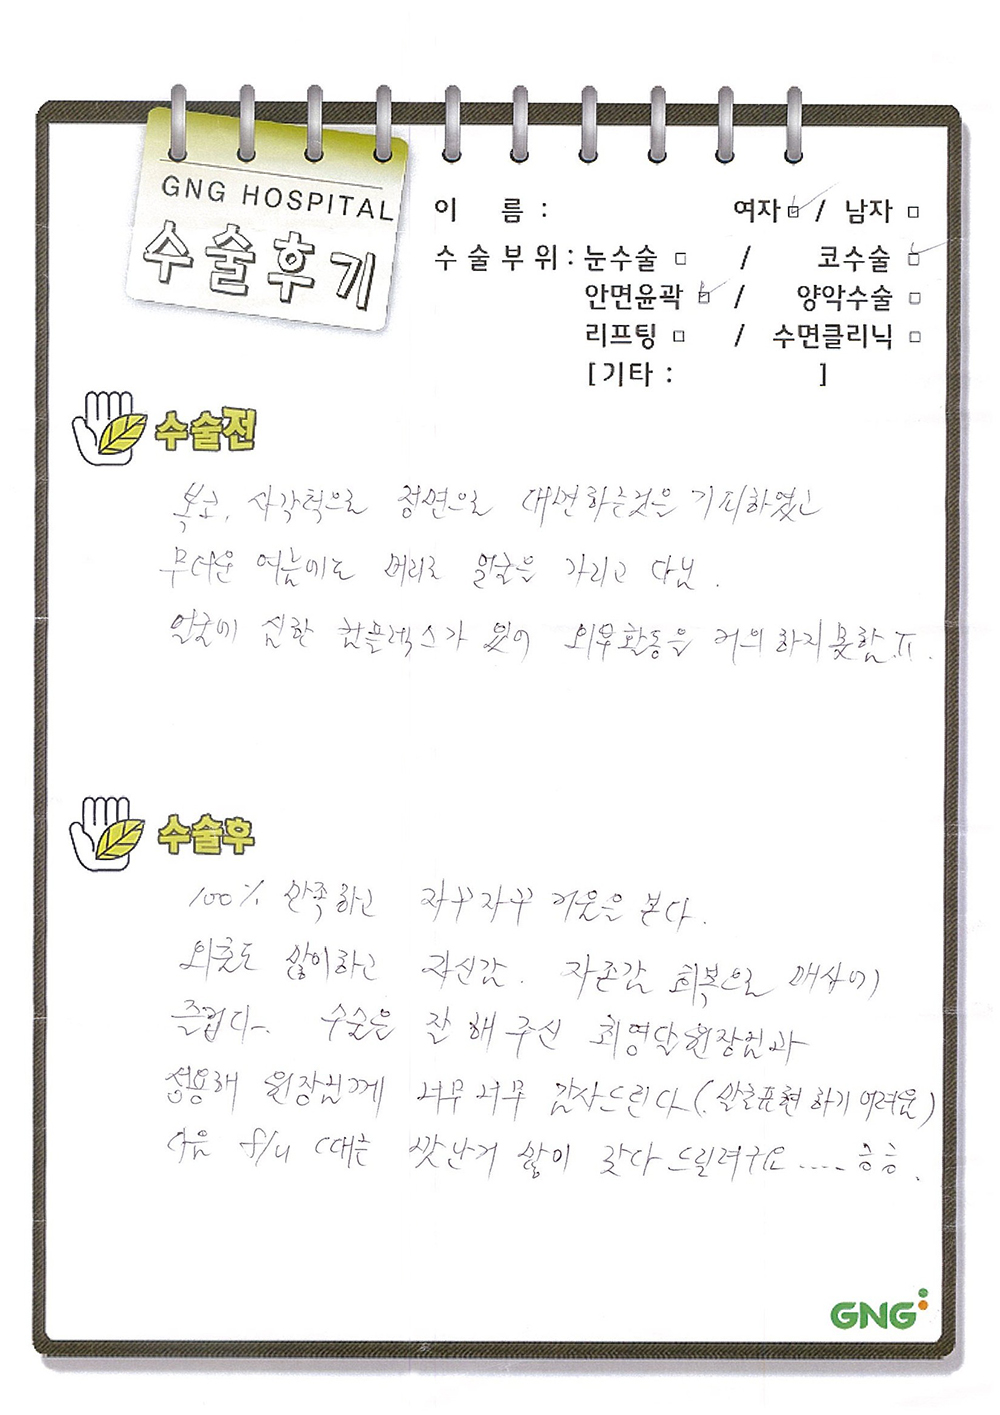 GNG HOSPITAL
수술후기
이 름 : 여자 ☑ / 남자 □
수술부위 : 눈수술 □ / 코수술 ☑
안면윤곽 ☑ / 양악수술 □
리프팅 □ / 수면클리닉 □
[기타 : ]
수술전
복코, 사각턱으로 정면으로 대면하는것을 기피하였고
무더운 여름에도 머리로 얼굴을 가리고 다님.
얼굴에 심한 컴플렉스가 있어 외부활동을 거의 하지 못함.ㅠ.
수술후
100% 만족하고 자꾸자꾸 거울을 본다.
외출도 많이하고 자신감. 자존감 회복으로 매사에
즐겁다~. 수술을 잘 해 주신 최영달원장님과
원장님께 너무너무 감사드린다(.말로표현 하기 어려운)
다음 f/u 때는 맛난거 많이 갖다 드릴려구요..... ㅎㅎ.
GNG